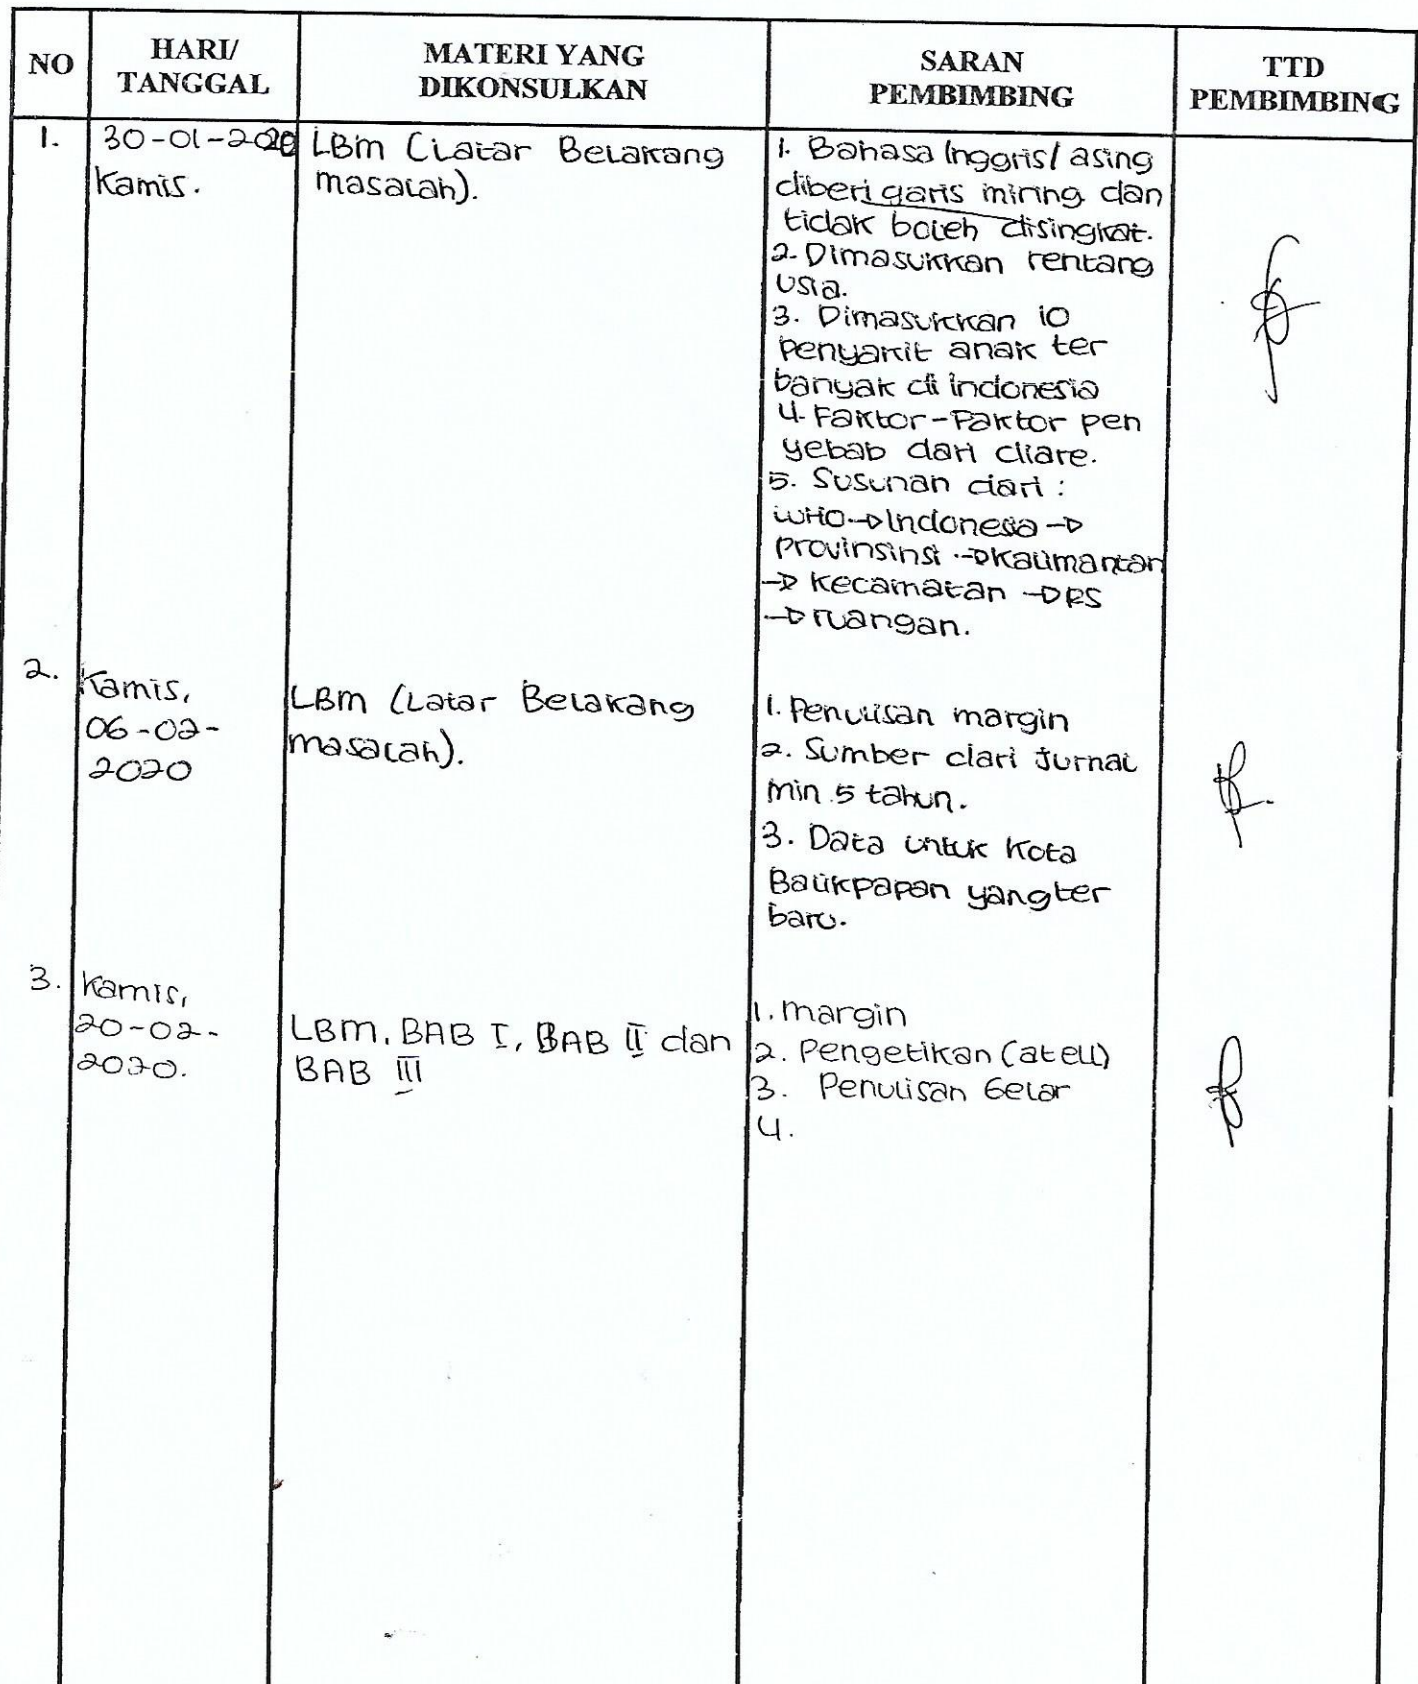 NO
HARI/
TANGGAL
MATERI YANG
DIKONSULKAN
SARAN
PEMBIMBING
TTD
PEMBIMBING
1.
30-01-2020
Kamis.
LBM (Latar Belakang
masalah).
1. Bahasa Inggris/ asing
diberi garis miring dan
tidak boleh disingkat.
2. Dimasukkan rentang
usia.
3. Dimasukkan 10
Penyakit anak ter
banyak di indonesia
4. Faktor-Faktor pen
yebab dari diare.
5. Susunan dari :
WHO → Indonesia →
Provinsinsi → Kalimantan
→ Kecamatan → RS
→ ruangan.
2.
Kamis,
06-02-
2020
LBM (Latar Belakang
masalah).
1. Penulisan margin
2. Sumber dari Jurnal
min 5 tahun.
3. Data untuk Kota
Balikpapan yang ter
baru.
3.
Kamis,
20-02-
2020.
LBM, BAB I, BAB II dan
BAB III
1. margin
2. Pengetikan (ateli)
3. Penulisan Gelar
4.